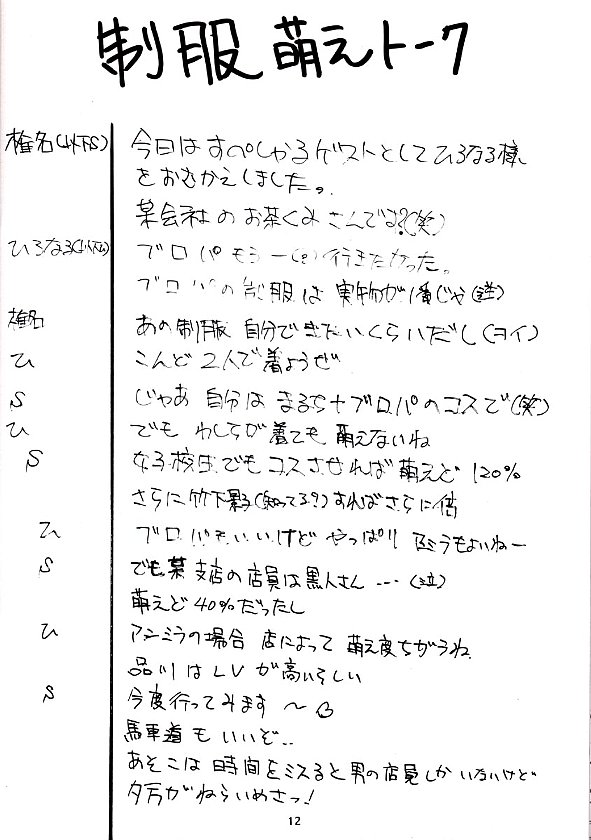 制服 萌えトーク
椎名(以下S) 今日はすぺしゃるゲストとしてひろなる様
をおむかえしました。
某会社のお茶くみさんでは?(笑)
ひろなる(以下ひ) ブロパもう一(?)行きたかった。
ブロパの制服は 実物が1番じゃ
椎名 あの制服 自分できたいくらいだし(ヨイ)
ひ こんど 2人で着ようぜ
S じゃあ 自分は まるち+ブロパのコスで(笑)
ひ でも わしらが着ても 萌えないね
S 女子校生でもコスさせれば萌えど 120%
さらに竹下 (知ってる?)すればさらに倍
ひ ブロパもいいけど やっぱり もよいねー
S でも某支店の店員は黒人さん…(泣)
萌えど40%だったし
ひ アンミラの場合 店によって 萌え度ちがうね
品川はLVが高いらしい
S 今度行ってみます〜
馬車道もいいぞ..
あそこは 時間をミスると男の店員しかいないけど
夕方がねらいめさっ!
12